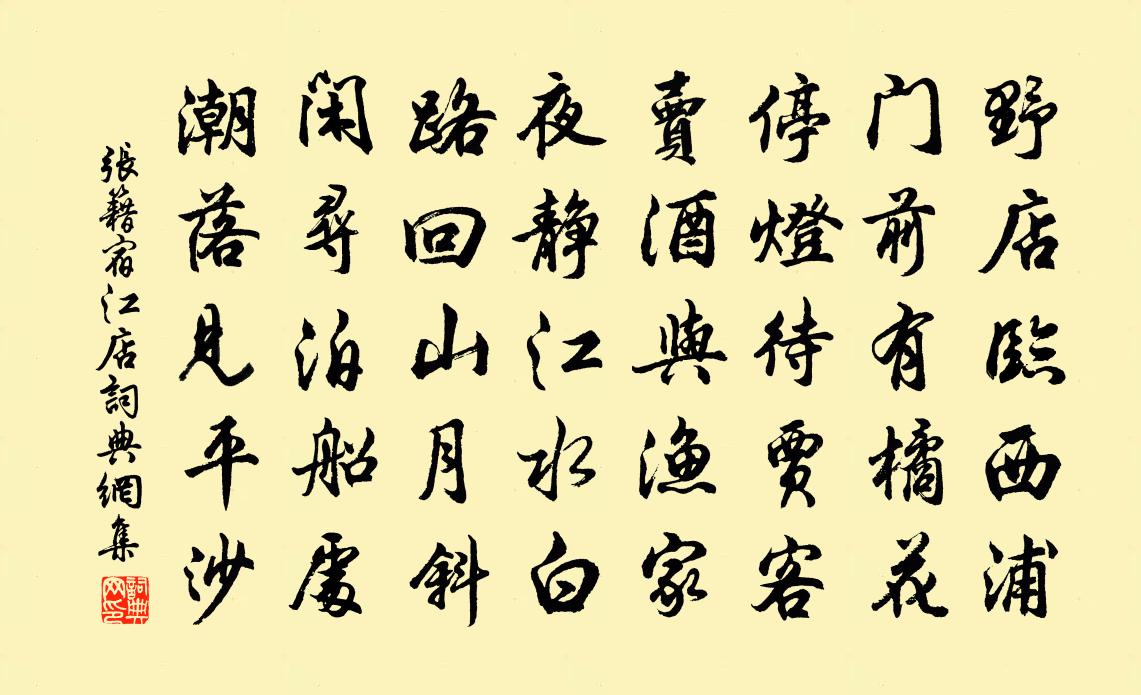 野店臨西浦
门前有橘花
停燈待賈客
賣酒與漁家
夜静江水白
路回山月斜
闲尋泊船處
潮落見平沙
張籍宿江店詞典網集
詞典网印